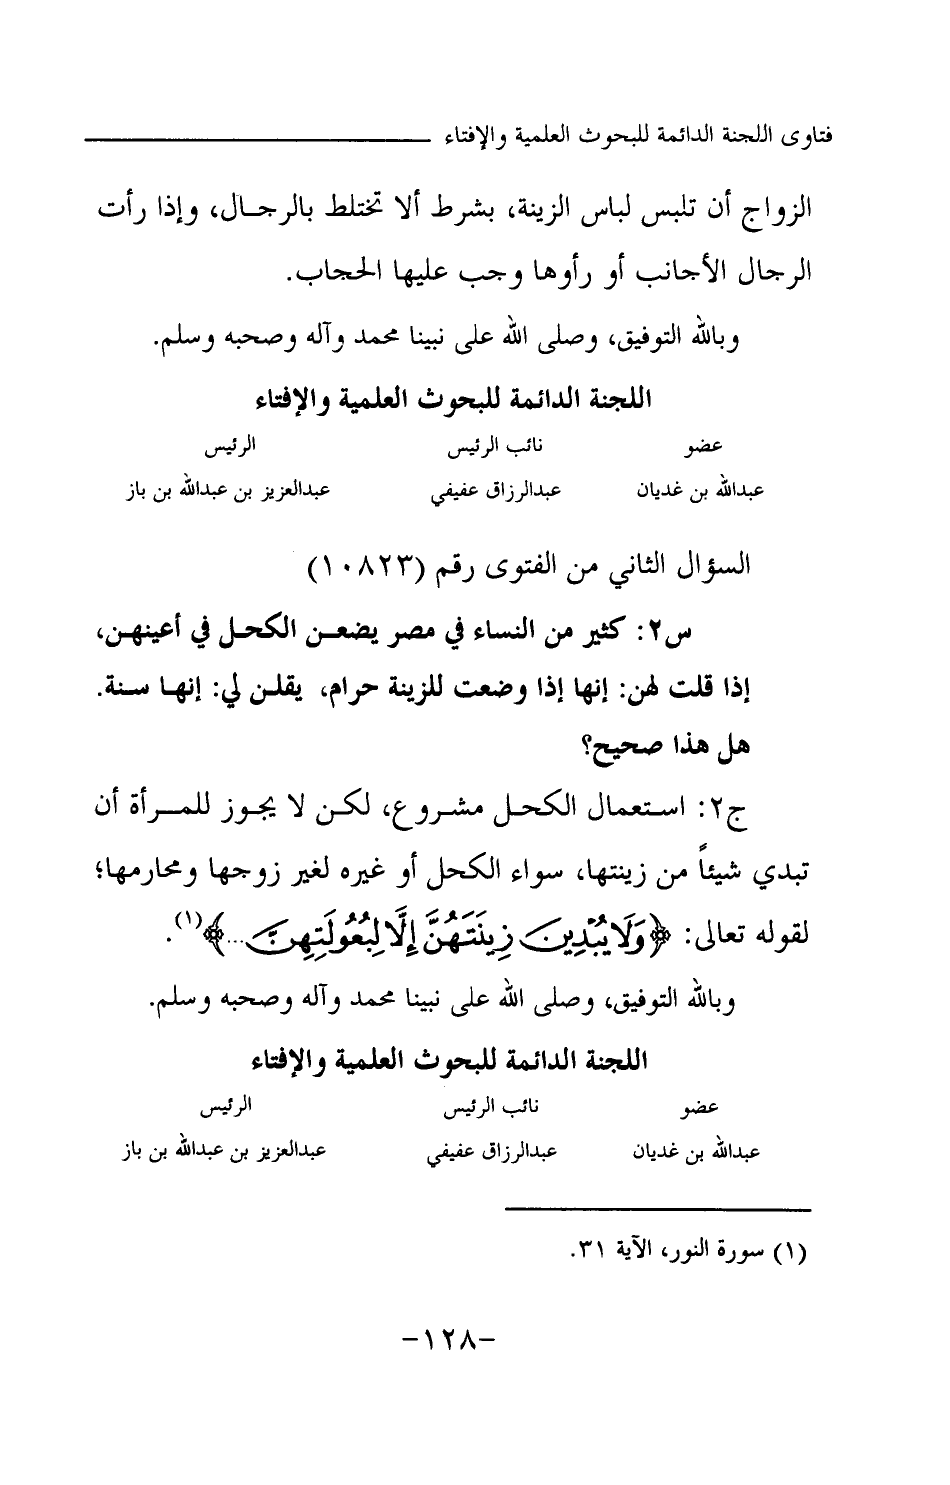 فتاوى اللجنة الدائمة للبحوث العلمية والإفتاء
الزواج أن تلبس لباس الزينة، بشرط ألا تختلط بالرجال، وإذا رأت
الرجال الأجانب أو رأوها وجب عليها الحجاب.
وبالله التوفيق، وصلى الله على نبينا محمد وآله وصحبه وسلم.
اللجنة الدائمة للبحوث العلمية والإفتاء
عضو نائب الرئيس الرئيس
عبدالله بن غديان عبدالرزاق عفيفي عبدالعزيز بن عبدالله بن باز
السؤال الثاني من الفتوى رقم (١٠٨٢٣)
س٢: كثير من النساء في مصر يضعن الكحل في أعينهن،
إذا قلت لهن: إنها إذا وضعت للزينة حرام، يقلن لي: إنها سنة.
هل هذا صحيح؟
ج٢: استعمال الكحل مشروع، لكن لا يجوز للمرأة أن
تبدي شيئاً من زينتها، سواء الكحل أو غيره لغير زوجها ومحارمها؛
لقوله تعالى: ﴿وَلَا يُبْدِينَ زِينَتَهُنَّ إِلَّا لِبُعُولَتِهِنَّ...﴾(١).
وبالله التوفيق، وصلى الله على نبينا محمد وآله وصحبه وسلم.
اللجنة الدائمة للبحوث العلمية والإفتاء
عضو نائب الرئيس الرئيس
عبدالله بن غديان عبدالرزاق عفيفي عبدالعزيز بن عبدالله بن باز
(١) سورة النور، الآية ٣١.
-١٢٨-